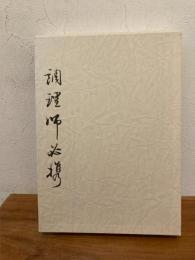 調理師必携